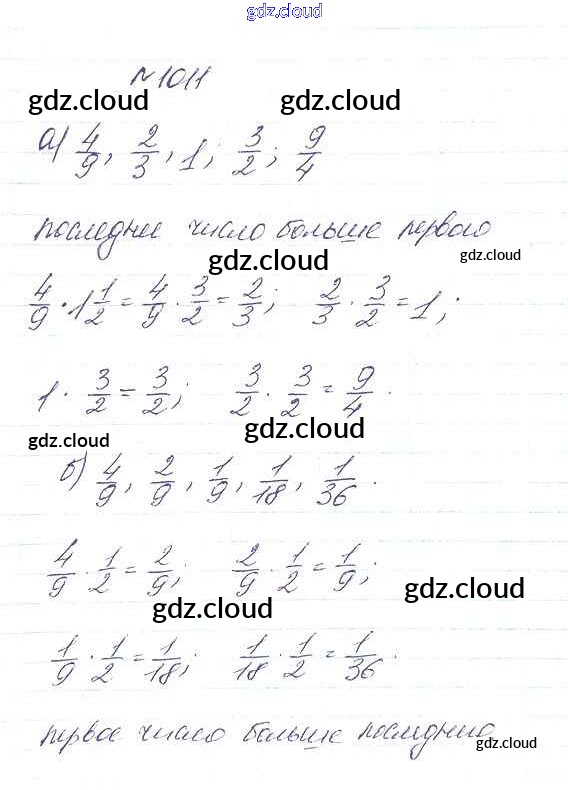 gdz.cloud
№1011
gdz.cloud gdz.cloud
а) 4/9, 2/3, 1; 3/2; 9/4
последнее число больше первого
gdz.cloud gdz.cloud
4/9 · 1 1/2 = 4/9 · 3/2 = 2/3; 2/3 · 3/2 = 1;
1 · 3/2 = 3/2; 3/2 · 3/2 = 9/4.
gdz.cloud gdz.cloud
б) 4/9, 2/9, 1/9, 1/18, 1/36.
4/9 · 1/2 = 2/9; 2/9 · 1/2 = 1/9;
gdz.cloud gdz.cloud
1/9 · 1/2 = 1/18; 1/18 · 1/2 = 1/36.
первое число больше последнего
gdz.cloud